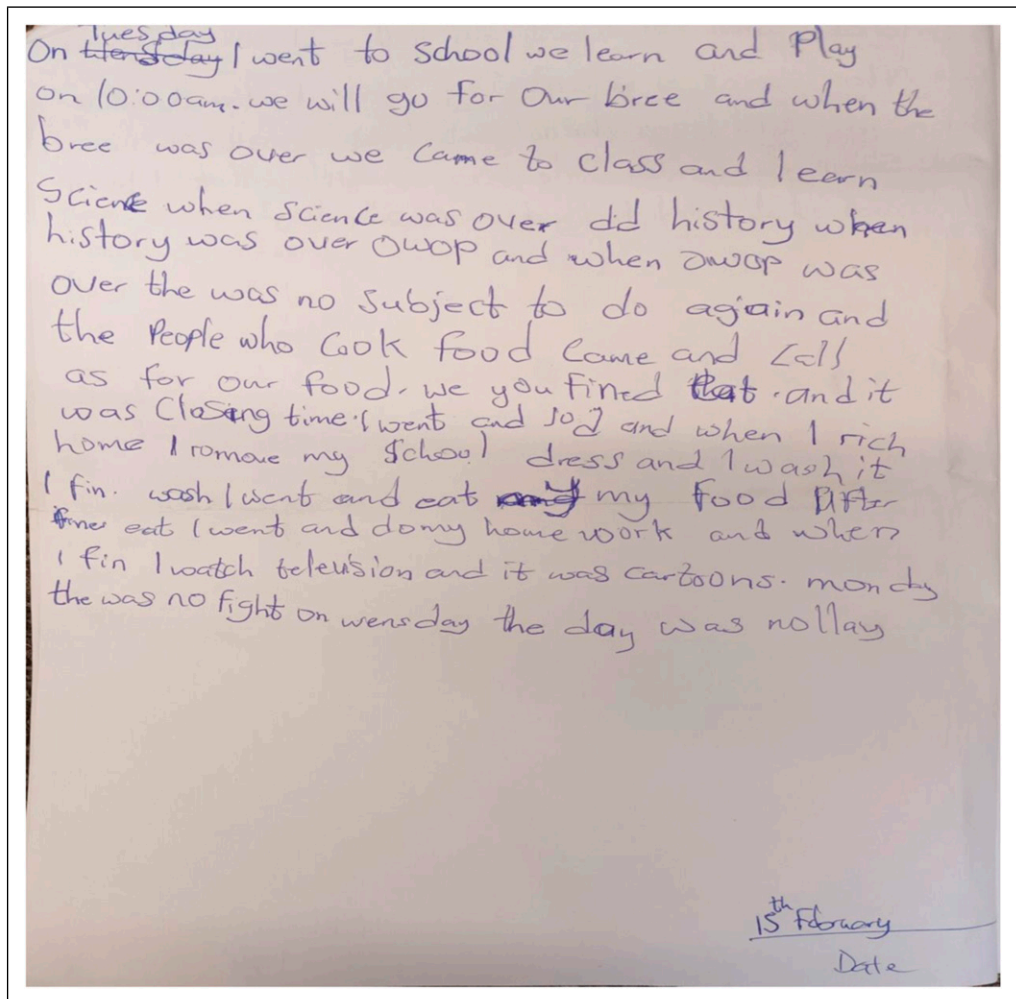 Tuesday
On I went to school we learn and Play
on 10:00am. we will go for our bree and when the
bree was over we came to class and learn
Science when science was over did history when
history was over OWOP and when OWOP was
over the was no subject to do again and
the People who Cook food Came and Call
as for our food. we you fined that. and it
was Closing time. I went and and when I rich
home I romove my School dress and I wash it
I fin. wash I went and eat my food After
eat I went and do my home work and when
I fin I watch television and it was cartoons. monday
the was no fight on wensday the day was
15th February
Date